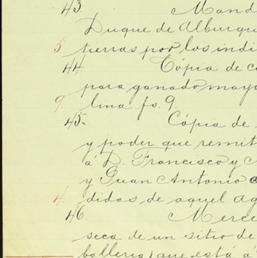 43. Mand
Duque de Alburqu
5 pierras por los indi
44 Cópia de c
para ganado mayo
9 lina fs. 9
45- Cópia de
y poder que remit
á D. Francisco y
y Juan Antonio
4 didas de aquel ag
46 Merce
seca de un sitio de
balleria que está á